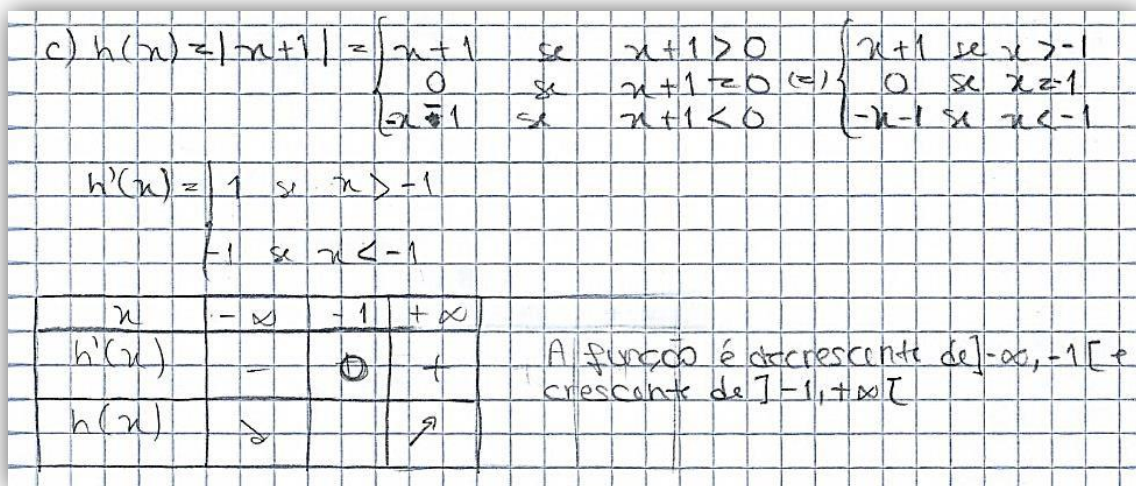 c) h(x) = |x+1| = { x+1 se x+1 > 0 { x+1 se x > -1
0 se x+1 = 0 (=) 0 se x = -1
-x-1 se x+1 < 0 -x-1 se x < -1
h'(x) = { 1 se x > -1
-1 se x < -1
x -∞ -1 +∞
h'(x) - 0 + A função é decrescente de ]-∞, -1[ e
crescente de ]-1, +∞[
h(x) ↘ ↗